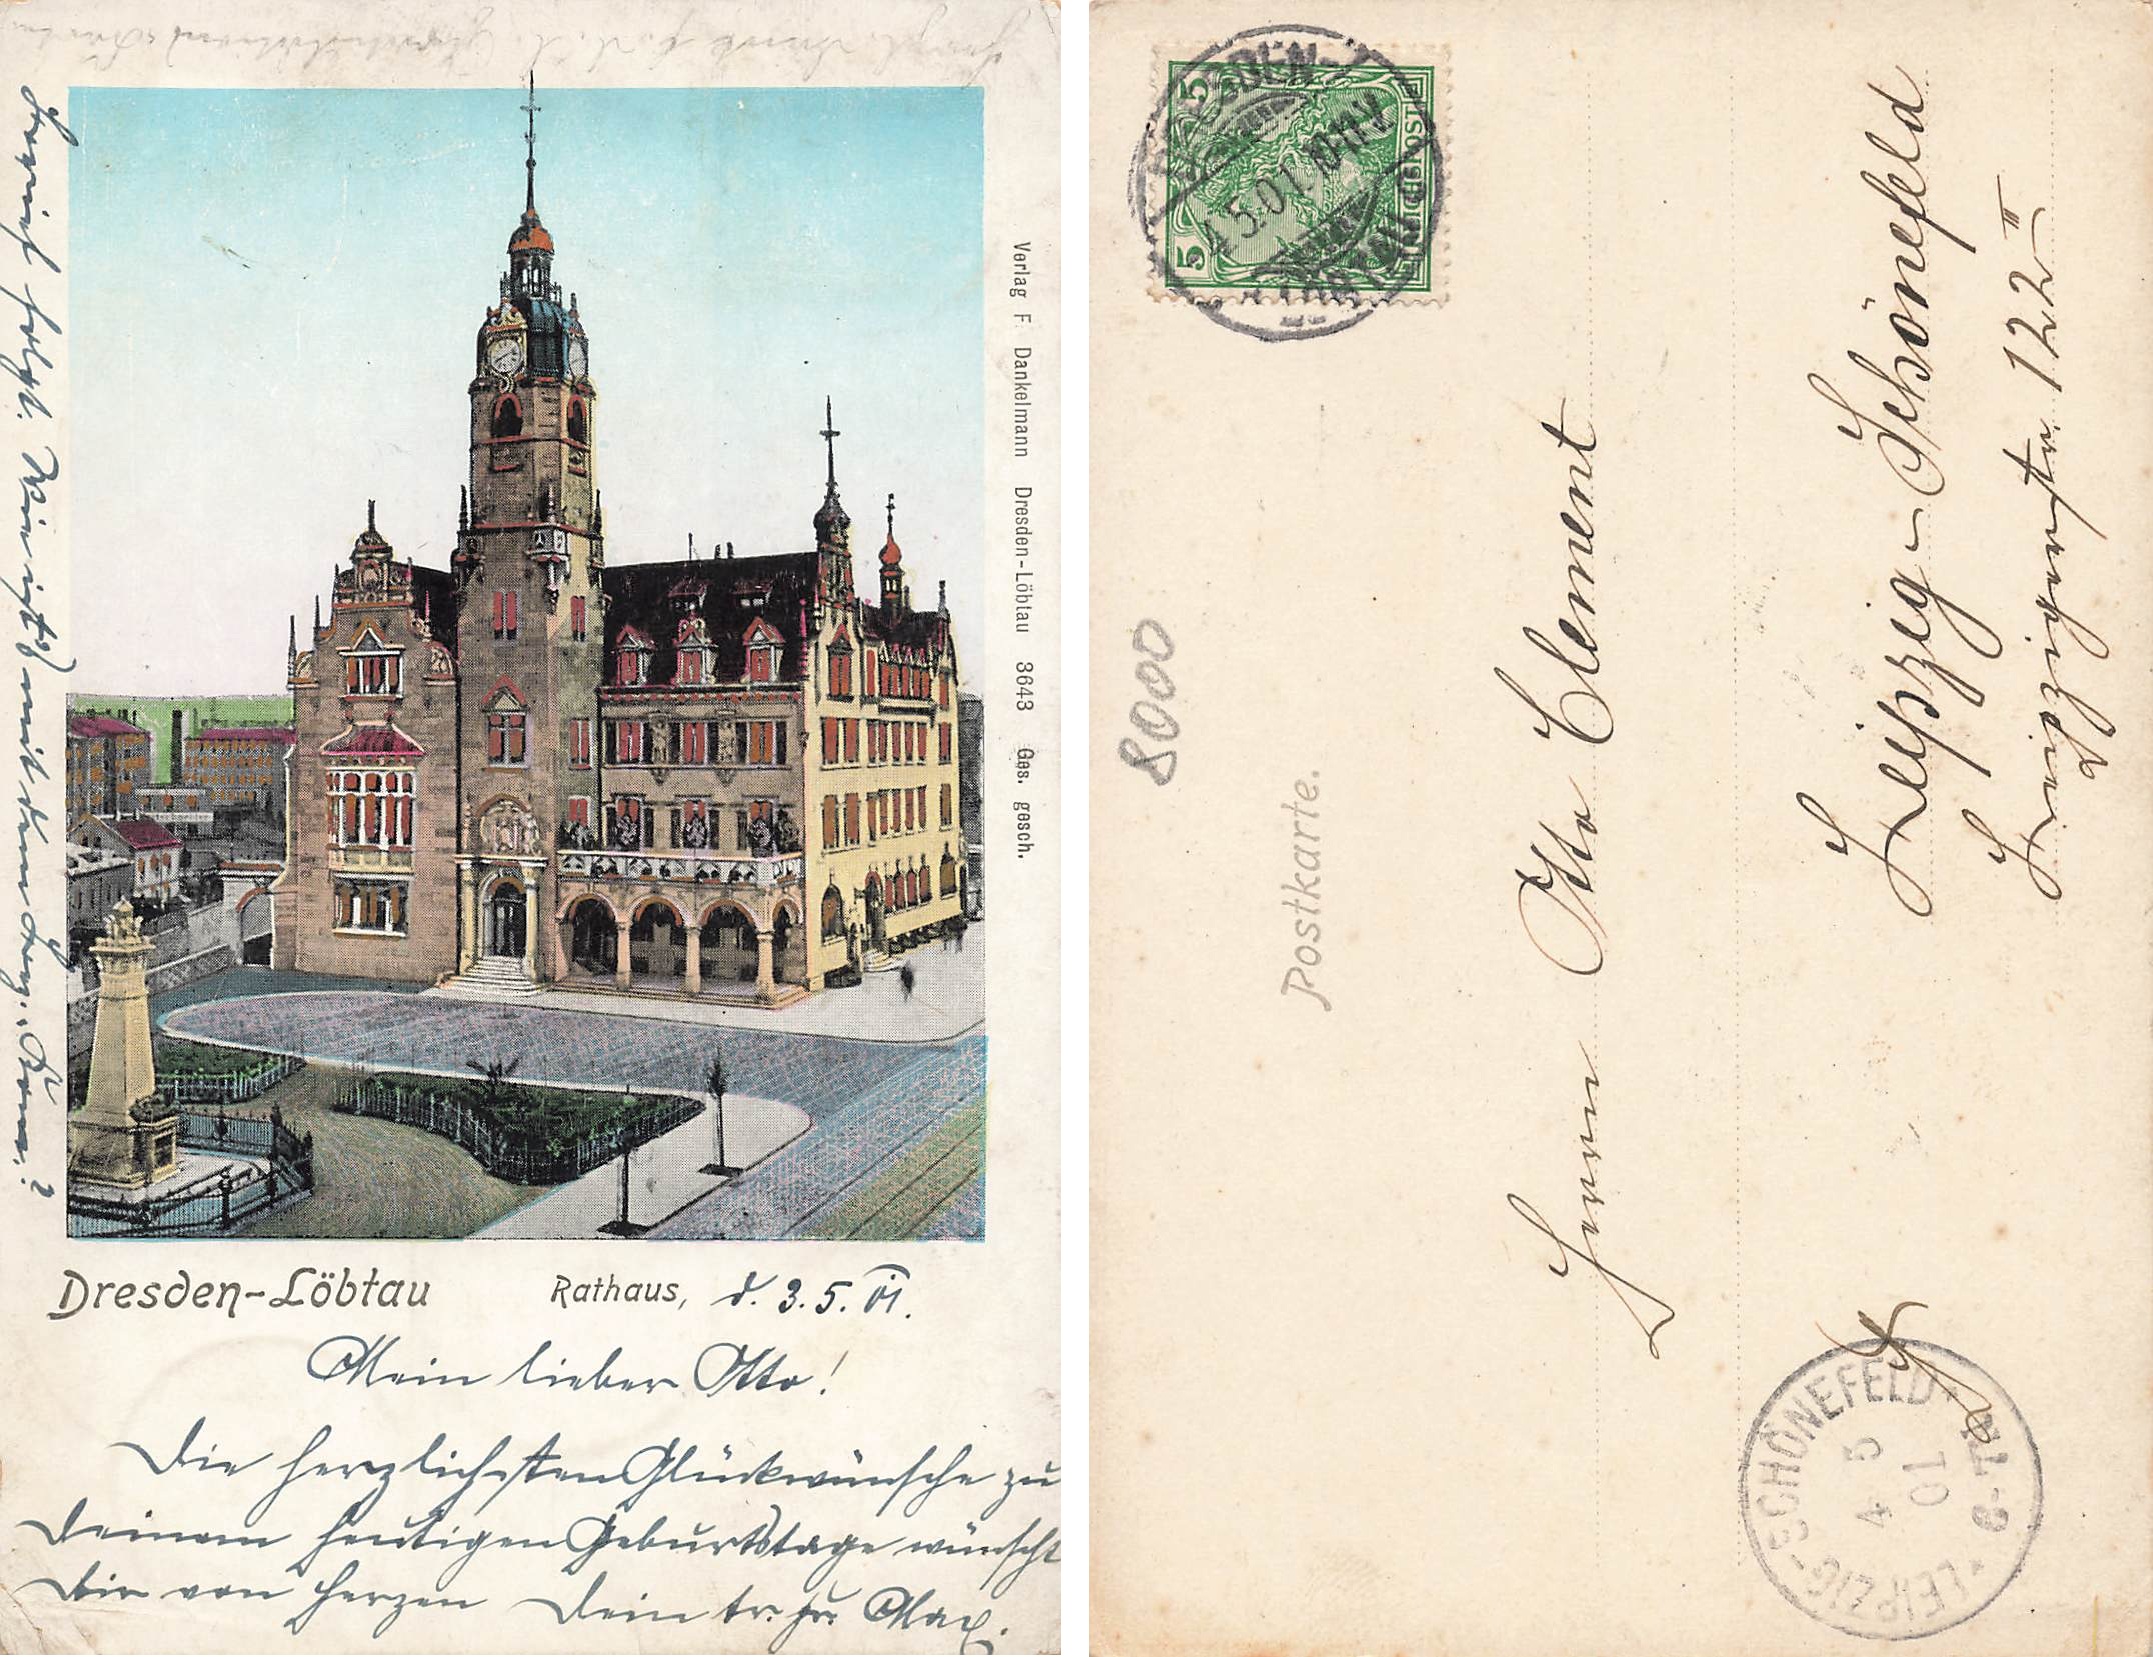 Verlag F. Dankelmann Dresden-Löbtau 3643 Ges. gesch.
Dresden-Löbtau Rathaus, d. 3.5.01.
Mein lieber Otto!
Die herzlichsten Glückwünsche zu
Deinem heutigen Geburtstage wünscht
Dir von Herzen Dein tr. Fr. Max.
Brief folgt. mit
5 5
DEUTSCHES REICHSPOST
DRESDEN
4.5.01. 10-11V.
LÖBTAU
8000
Postkarte.
Herrn Otto Clement
Leipzig-Schönefeld
Leipzigerstr. 122 III
LEIPZIG-SCHÖNEFELD
4 5
01
6-7N